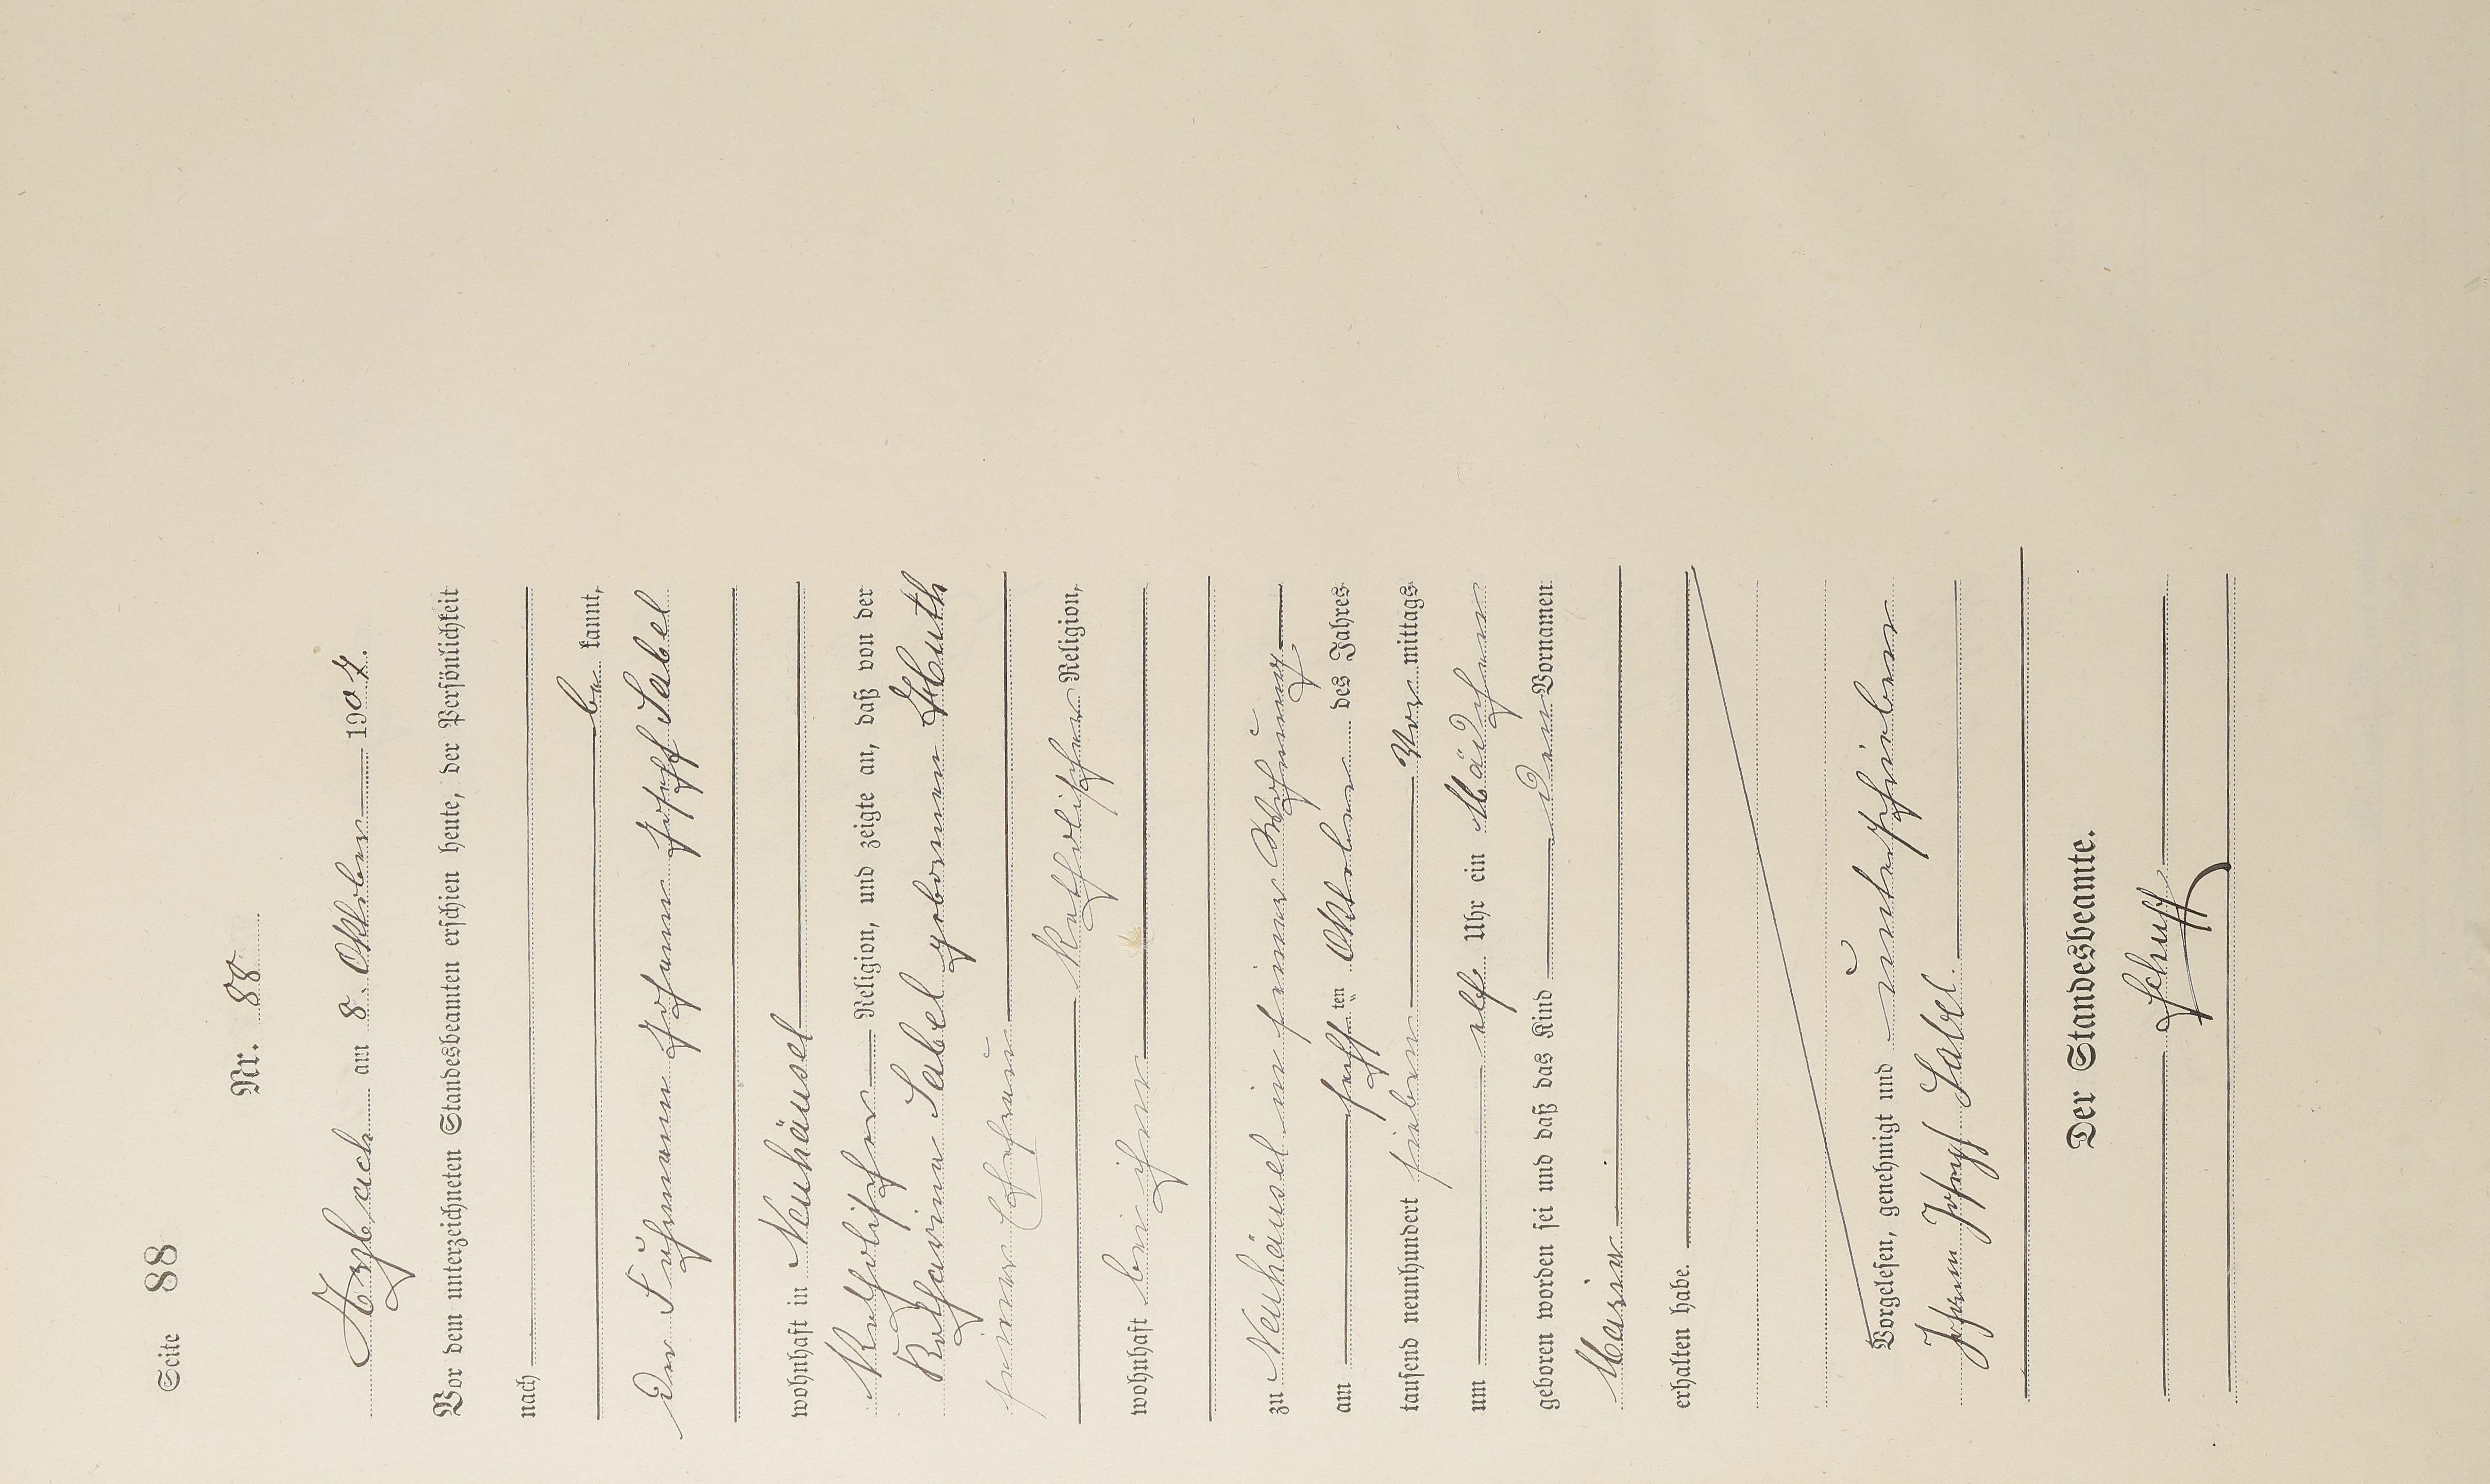 Seite 88
Nr. 88
Arzbach am 8. Oktober 1907.
Vor dem unterzeichneten Standesbeamten erschien heute, der Persönlichkeit
nach
be kannt,
der Fuhrmann Johann Joseph Sabel
wohnhaft in Neuhäusel
Katholischer Religion, und zeigte an, daß von der
Katharina Sabel geborenen Huth
seiner Ehefrau
Katholischer Religion,
wohnhaft bei ihm
zu Neuhäusel in seiner Wohnung
am sechsten Oktober des Jahres
tausend neunhundert sieben Vor mittags
um elf Uhr ein Mädchen
geboren worden sei und daß das Kind den Vornamen
Maria
erhalten habe.
Vorgelesen, genehmigt und unterschrieben
Johann Joseph Sabel.
Der Standesbeamte.